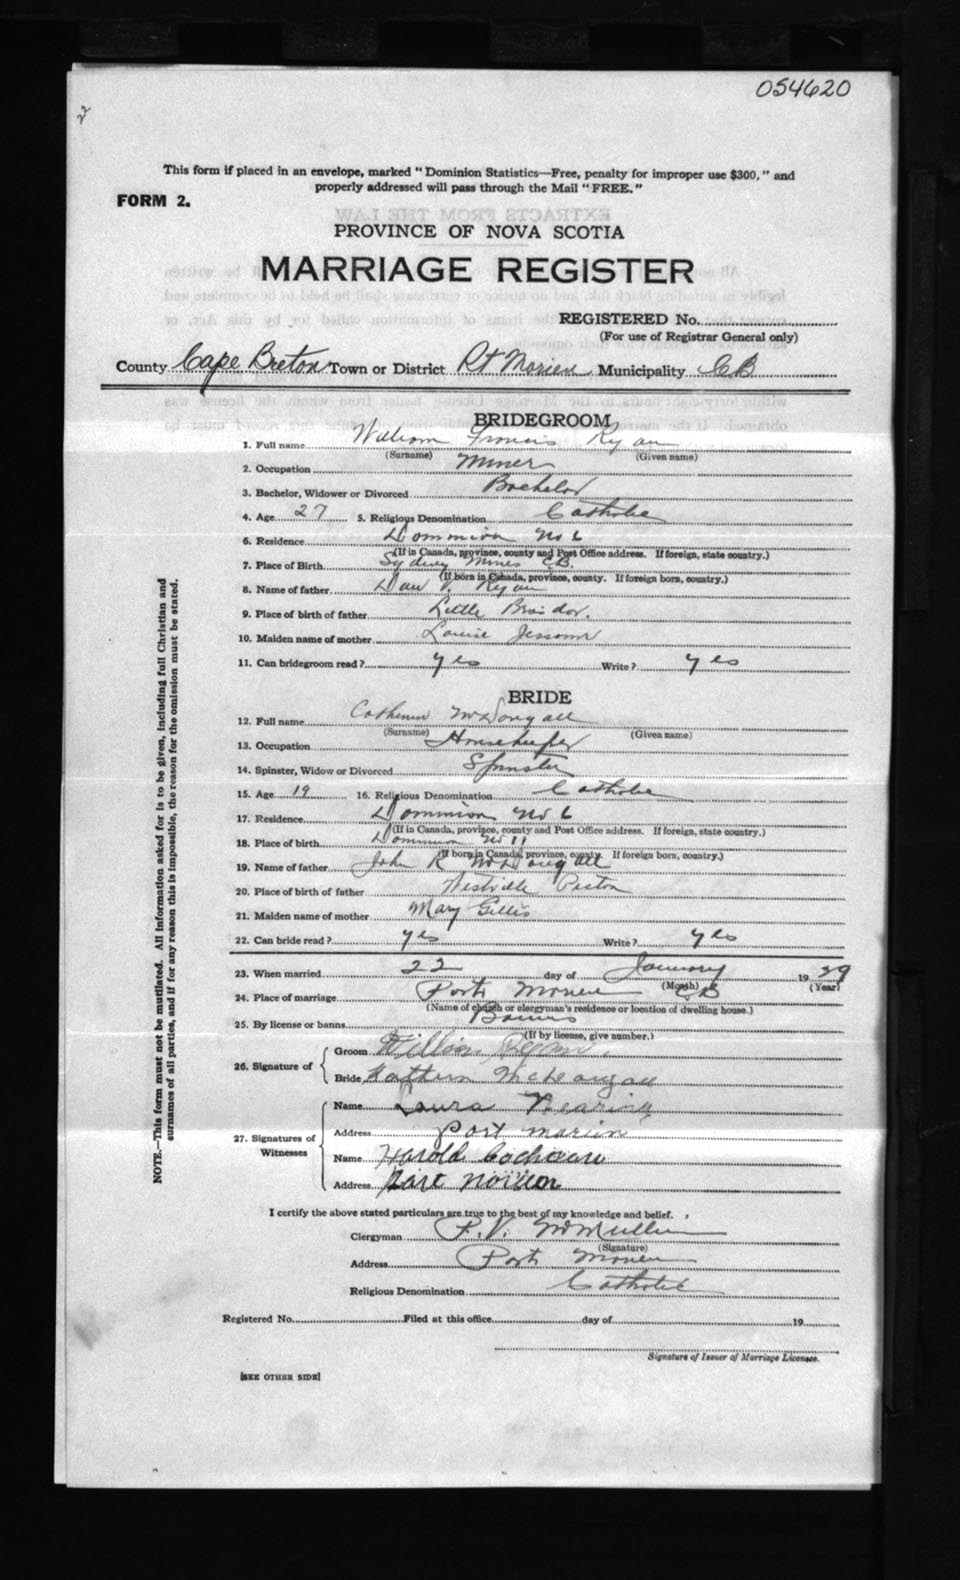 054620
2
This form if placed in an envelope, marked "Dominion Statistics—Free, penalty for improper use $300," and
properly addressed will pass through the Mail "FREE."
FORM 2.
EXTRACTS FROM THE LAW
PROVINCE OF NOVA SCOTIA
MARRIAGE REGISTER
REGISTERED No.
(For use of Registrar General only)
County Cape Breton Town or District Pt Morien Municipality CB
BRIDEGROOM
1. Full name William Francis Ryan
(Surname) (Given name)
2. Occupation Miner
3. Bachelor, Widower or Divorced Bachelor
4. Age 27 5. Religious Denomination Catholic
6. Residence Dominion No 6
(If in Canada, province, county and Post Office address. If foreign, state country.)
7. Place of Birth Sydney Mines CB.
(If born in Canada, province, county. If foreign born, country.)
8. Name of father Dan V. Ryan
9. Place of birth of father Little Brasdor.
10. Maiden name of mother Louise Jessome
11. Can bridegroom read? yes Write? yes
BRIDE
12. Full name Catherine McDougall
(Surname) (Given name)
13. Occupation Housekeeper
14. Spinster, Widow or Divorced Spinster
15. Age 19 16. Religious Denomination Catholic
17. Residence Dominion No 6
(If in Canada, province, county and Post Office address. If foreign, state country.)
18. Place of birth Dominion No 11
(If born in Canada, province, county. If foreign born, country.)
19. Name of father John R McDougall
20. Place of birth of father Westville Pictou
21. Maiden name of mother Mary Gillis
22. Can bride read? yes Write? yes
23. When married 22 day of January 1929
(Month) (Year)
24. Place of marriage Port Morien CB
(Name of church or clergyman's residence or location of dwelling house.)
25. By license or banns Banns
(If by license, give number.)
26. Signature of
Groom William Ryan.
Bride Kathern McDougall
27. Signatures of Witnesses
Name Laura
Address Port Marien
Name Harold
Address Port Morien
I certify the above stated particulars are true to the best of my knowledge and belief.
Clergyman P. V. McMullin
(Signature)
Address Port Morien
Religious Denomination Catholic
Registered No. Filed at this office day of 19
Signature of Issuer of Marriage Licenses.
[SEE OTHER SIDE]
NOTE.—This form must not be mutilated. All information asked for is to be given, including full Christian and
surnames of all parties, and if for any reason this is impossible, the reason for the omission must be stated.